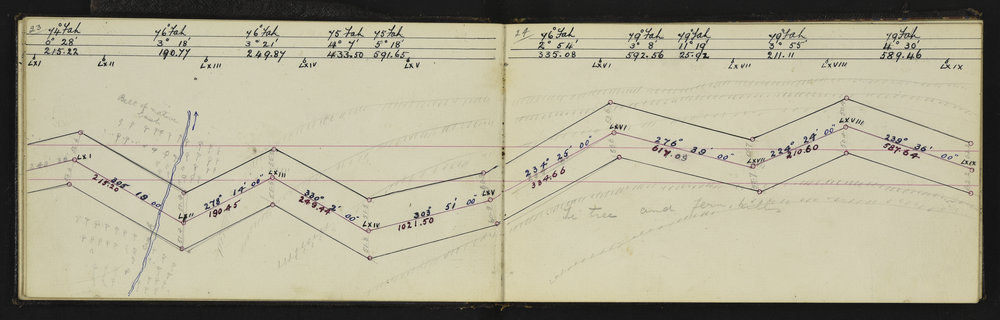 23 74° Fah 76° Fah 76° Fah 75° Fah 75° Fah
0° 28' 3° 18' 3° 21' 4° 7' 5° 18'
215.22 190.77 249.87 433.50 591.65
LXI LXII LXIII LXIV LXV
LXI
305 18 00
215.20
LXII
278° 14' 00"
190.45
LXIII
330° 2' 00"
249.44
LXIV
303° 51' 00"
1021.50
LXV
24 76° Fah 79° Fah 79° Fah 79° Fah
2° 54' 3° 8' 11° 19' 3° 55' 4° 30'
335.08 592.56 25.92 211.11 589.46
LXVI LXVII LXVIII LXIX
234° 25' 00"
334.66
LXVI
276° 39' 00"
617.09
LXVII
224° 24' 00"
210.60
LXVIII
239° 36' 00"
587.64
LXIX
Ti tree and fern hills